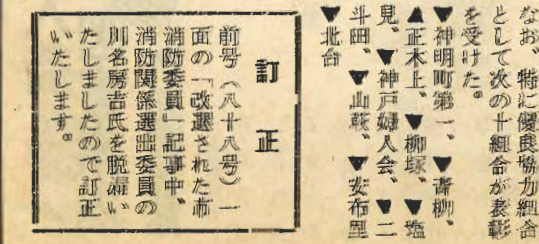 なお、特に優良協力組合
として次の十組合が表彰
を受けた。
▼神明町第一、▼青柳、
▲正木上、▼柳塚、▼塩
見、▼神戸婦人会、▼二
斗田、▼山萩、▼安布里
▼北台
訂正
前号(八十八号)一
面の「改選された市
消防委員」記事中、
消防関係選出委員の
川名房吉氏を脱漏い
たしましたので訂正
いたします。